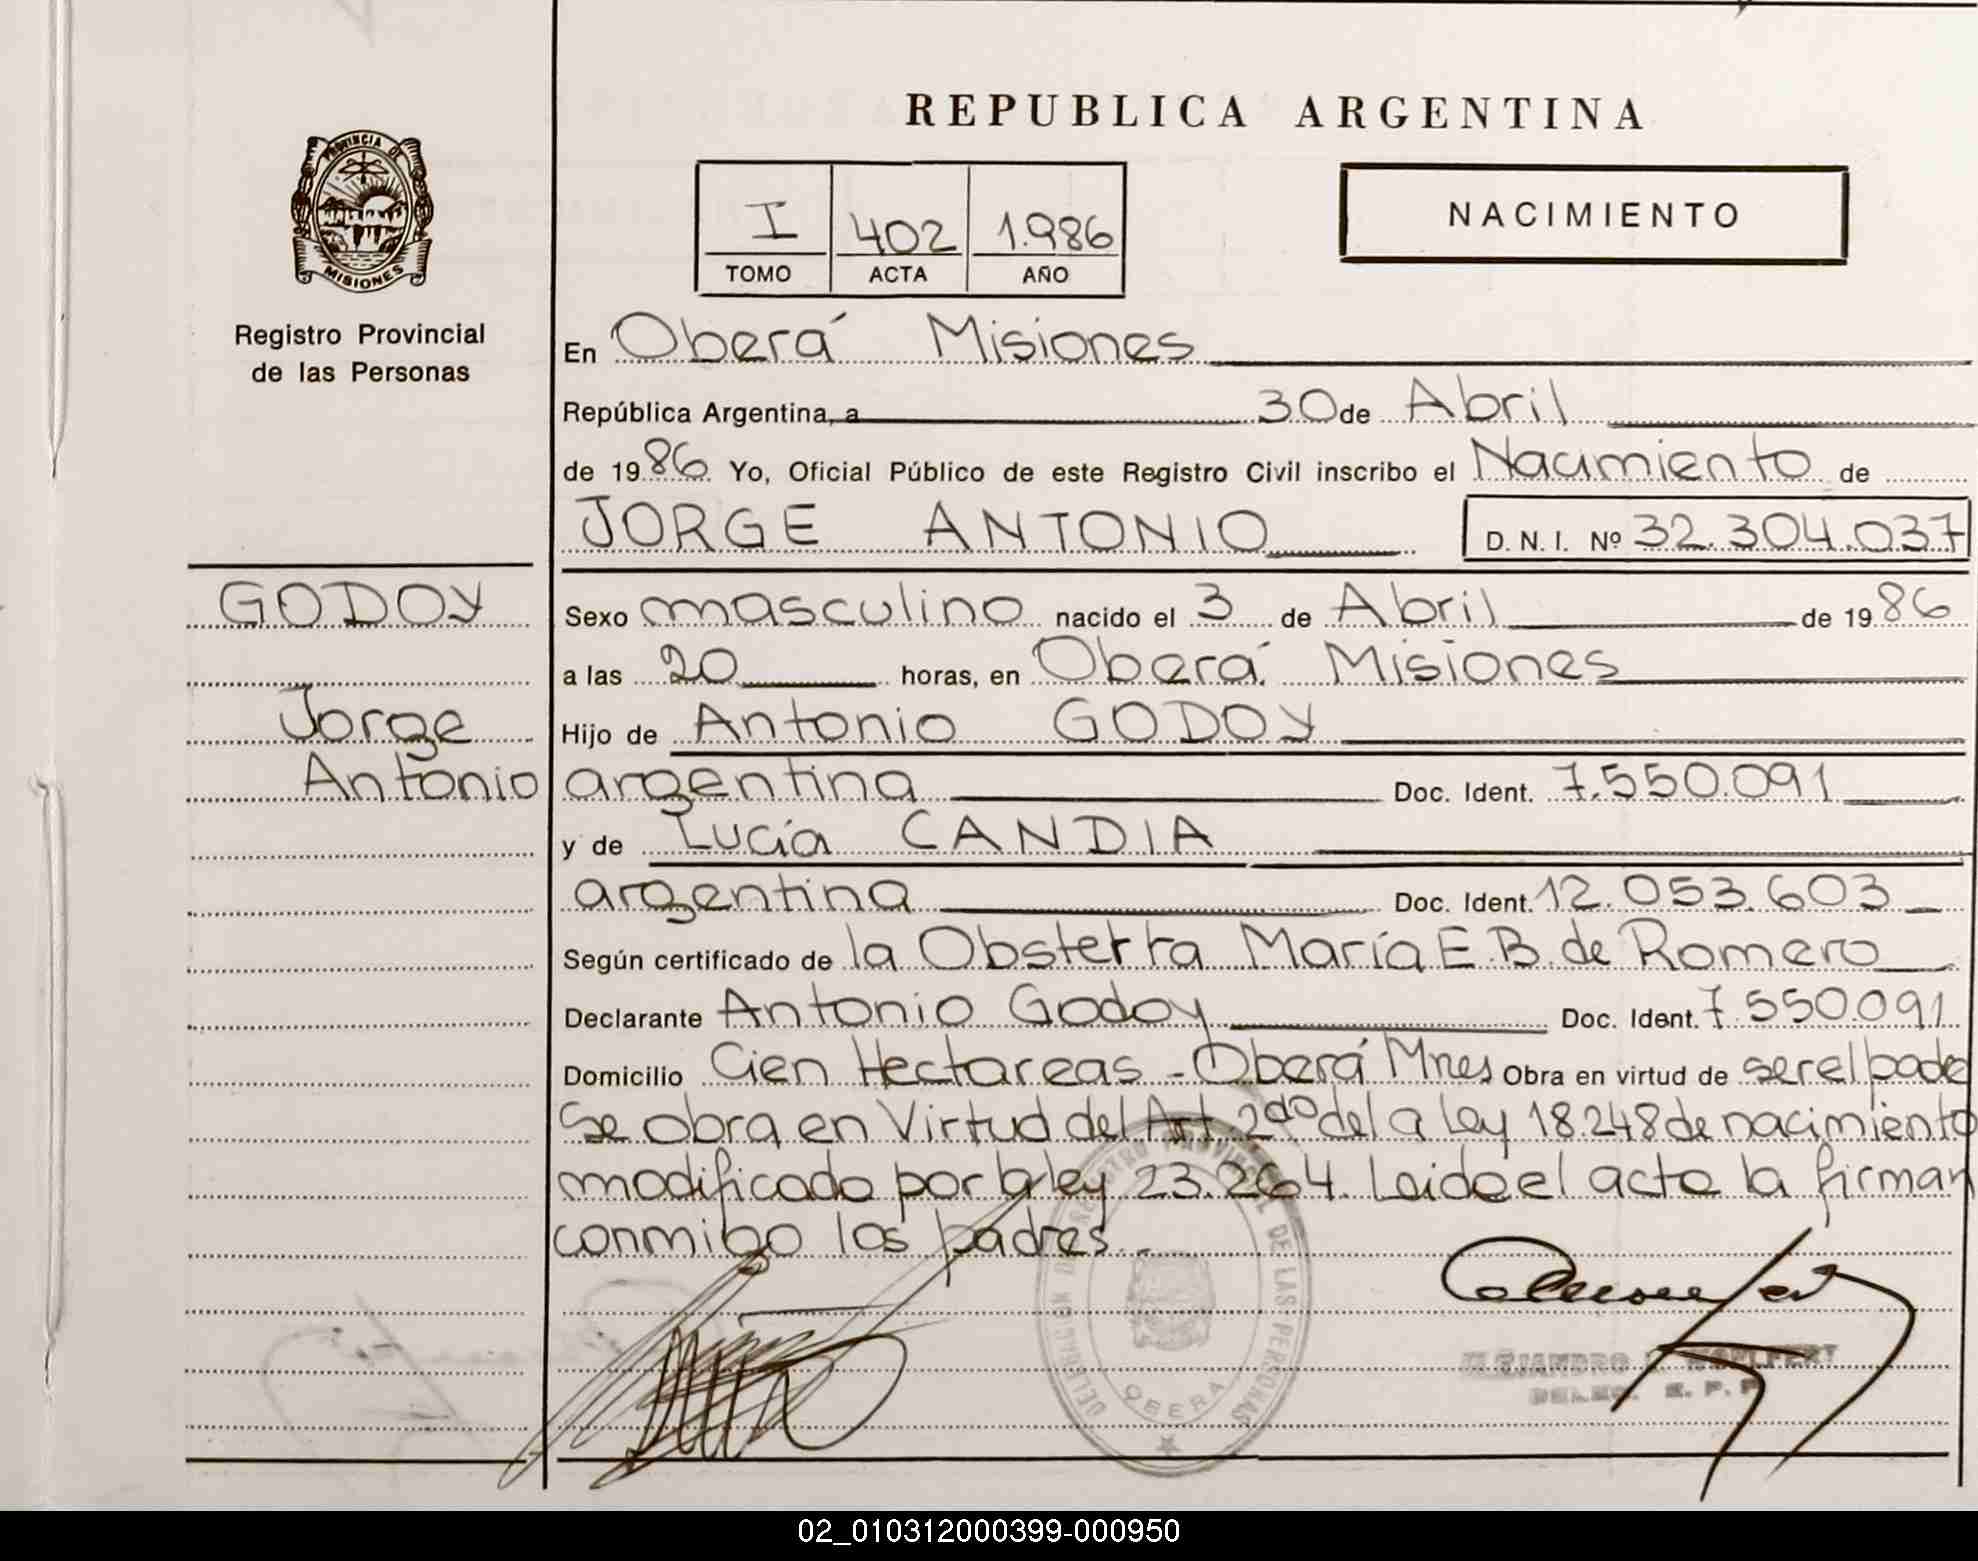 REPUBLICA ARGENTINA
PROVINCIA DE
MISIONES
Registro Provincial
de las Personas
I 402 1.986
TOMO ACTA AÑO
NACIMIENTO
En Oberá Misiones
República Argentina, a 30 de Abril
de 1986 Yo, Oficial Público de este Registro Civil inscribo el Nacimiento de
JORGE ANTONIO D. N. I. Nº 32.304.037
GODOY
Jorge
Antonio
Sexo masculino nacido el 3 de Abril de 1986
a las 20 horas, en Oberá Misiones
Hijo de Antonio GODOY
argentina Doc. Ident. 7.550.091
y de Lucía CANDIA
argentina Doc. Ident. 12.053.603
Según certificado de la Obstetra María E.B. de Romero
Declarante Antonio Godoy Doc. Ident. 7.550.091
Domicilio Cien Hectareas - Oberá Mnes Obra en virtud de ser el padre
Se obra en Virtud del Art. 2do de la Ley 18.248 de nacimiento
modificado por la ley 23.264. Leido el acta la firman
conmigo los padres.-
DELEGACION DE REGISTRO PROVINCIAL DE LAS PERSONAS
OBERA
ALEJANDRO WOLFERT
02_010312000399-000950